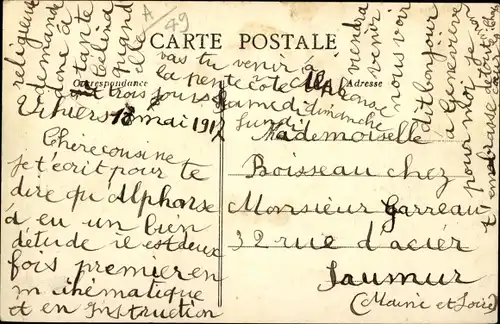 A/89
CARTE POSTALE
Correspondance
Adresse
Vihiers 18 mai 191
Chere cousine
Je t'écrit pour te
dire qu'Alphonse
à eu un bien
détude il est deux
fois premier en
m cinématique
et en instruction
religieuse
demande
donc à
ta tante
Célina
quand
elle
viendra
venir
nous voir
vas tu venir à
la pentecôte Alphonse
à trois jours
samedi dimanche
lundi
dit bonjour
à Geneviève
pour moi je
t'embrasse de tout
Mademoiselle
Boisseau chez
Monsieur Garreau
32 rue d'acier
Saumur
(Maine et Loire)